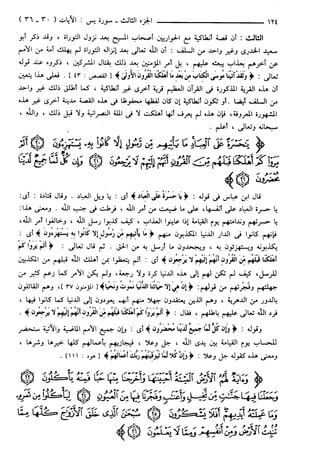 ١٢٤ الجزء الثالث - سورة يس: الآيات (٣٠ - ٣٦)
الثالث: أن قصة أنطاكية مع الحواريين أصحاب المسيح بعد نزول التوراة، وقد ذكر أبو
سعيد الخدري وغير واحد من السلف: أن الله تعالى بعد إنزاله التوراة لم يهلك أمة من الأمم
عن آخرهم بعذاب يبعثه عليهم، بل أمر المؤمنين بعد ذلك بقتال المشركين، ذكروه عند قوله
تعالى: ﴿ولقد آتينا موسى الكتاب من بعد ما أهلكنا القرون الأولى﴾ [القصص: ٤٣]. فعلى هذا يتعين
أن هذه القرية المذكورة في القرآن العظيم قرية أخرى غير أنطاكية، كما أطلق ذلك غير واحد
من السلف أيضا. أو تكون أنطاكية إن كان لفظها محفوظا في هذه القصة مدينة أخرى غير هذه
المشهورة المعروفة، فإن هذه لم يعرف أنها أهلكت لا في الملة النصرانية ولا قبل ذلك، والله،
سبحانه وتعالى، أعلم.
﴿يا حسرة على العباد ما يأتيهم من رسول إلا كانوا به يستهزئون (٣٠) ألم
يروا كم أهلكنا قبلهم من القرون أنهم إليهم لا يرجعون (٣١) وإن كل لما جميع لدينا
محضرون (٣٢)﴾
قال ابن عباس في قوله: ﴿يا حسرة على العباد﴾ أي: يا ويل العباد. وقال قتادة: أي:
يا حسرة العباد على أنفسها، على ما ضيعت من أمر الله، فرطت في جنب الله. ومعنى هذا:
يا حسرتهم وندامتهم يوم القيامة إذا عاينوا العذاب، كيف كذبوا رسل الله، وخالفوا أمر الله،
فإنهم كانوا في الدار الدنيا المكذبون منهم ﴿ما يأتيهم من رسول إلا كانوا به يستهزئون﴾ أي:
يكذبونه ويستهزئون به، ويجحدون ما أرسل به من الحق. ثم قال تعالى: ﴿ألم يروا كم
أهلكنا قبلهم من القرون أنهم إليهم لا يرجعون﴾ أي: ألم يتعظوا بمن أهلك الله قبلهم من المكذبين
للرسل، كيف لم تكن لهم إلى هذه الدنيا كرة ولا رجعة، ولم يكن الأمر كما زعم كثير من
جهلتهم وفجرتهم من قولهم: ﴿إن هي إلا حياتنا الدنيا نموت ونحيا﴾ [المؤمنون ٣٧]، وهم القائلون
بالدور من الدهرية، وهم الذين يعتقدون جهلا منهم أنهم يعودون إلى الدنيا كما كانوا فيها،
فرد الله تعالى عليهم باطلهم، فقال: ﴿ألم يروا كم أهلكنا قبلهم من القرون أنهم إليهم لا يرجعون﴾.
وقوله: ﴿وإن كل لما جميع لدينا محضرون﴾ أي: وإن جميع الأمم الماضية والآتية ستحضر
للحساب يوم القيامة بين يدي الله، جل وعلا، فيجازيهم بأعمالهم كلها خيرها وشرها،
ومعنى هذه كقوله جل وعلا: ﴿وإن كلا لما ليوفينهم ربك أعمالهم﴾ [هود: ١١١].
﴿وآية لهم الأرض الميتة أحييناها وأخرجنا منها حبا فمنه يأكلون (٣٣)
وجعلنا فيها جنات من نخيل وأعناب وفجرنا فيها من العيون (٣٤) ليأكلوا من ثمره
وما عملته أيديهم أفلا يشكرون (٣٥) سبحان الذي خلق الأزواج كلها مما
تنبت الأرض ومن أنفسهم ومما لا يعلمون (٣٦)﴾